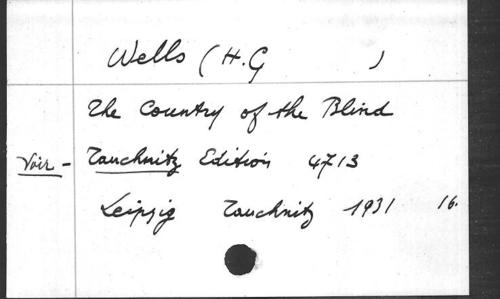 Wells (H.G )
The Country of the Blind
Voir - Tauchnitz Edition 4713
Leipzig Tauchnitz 1931 16.